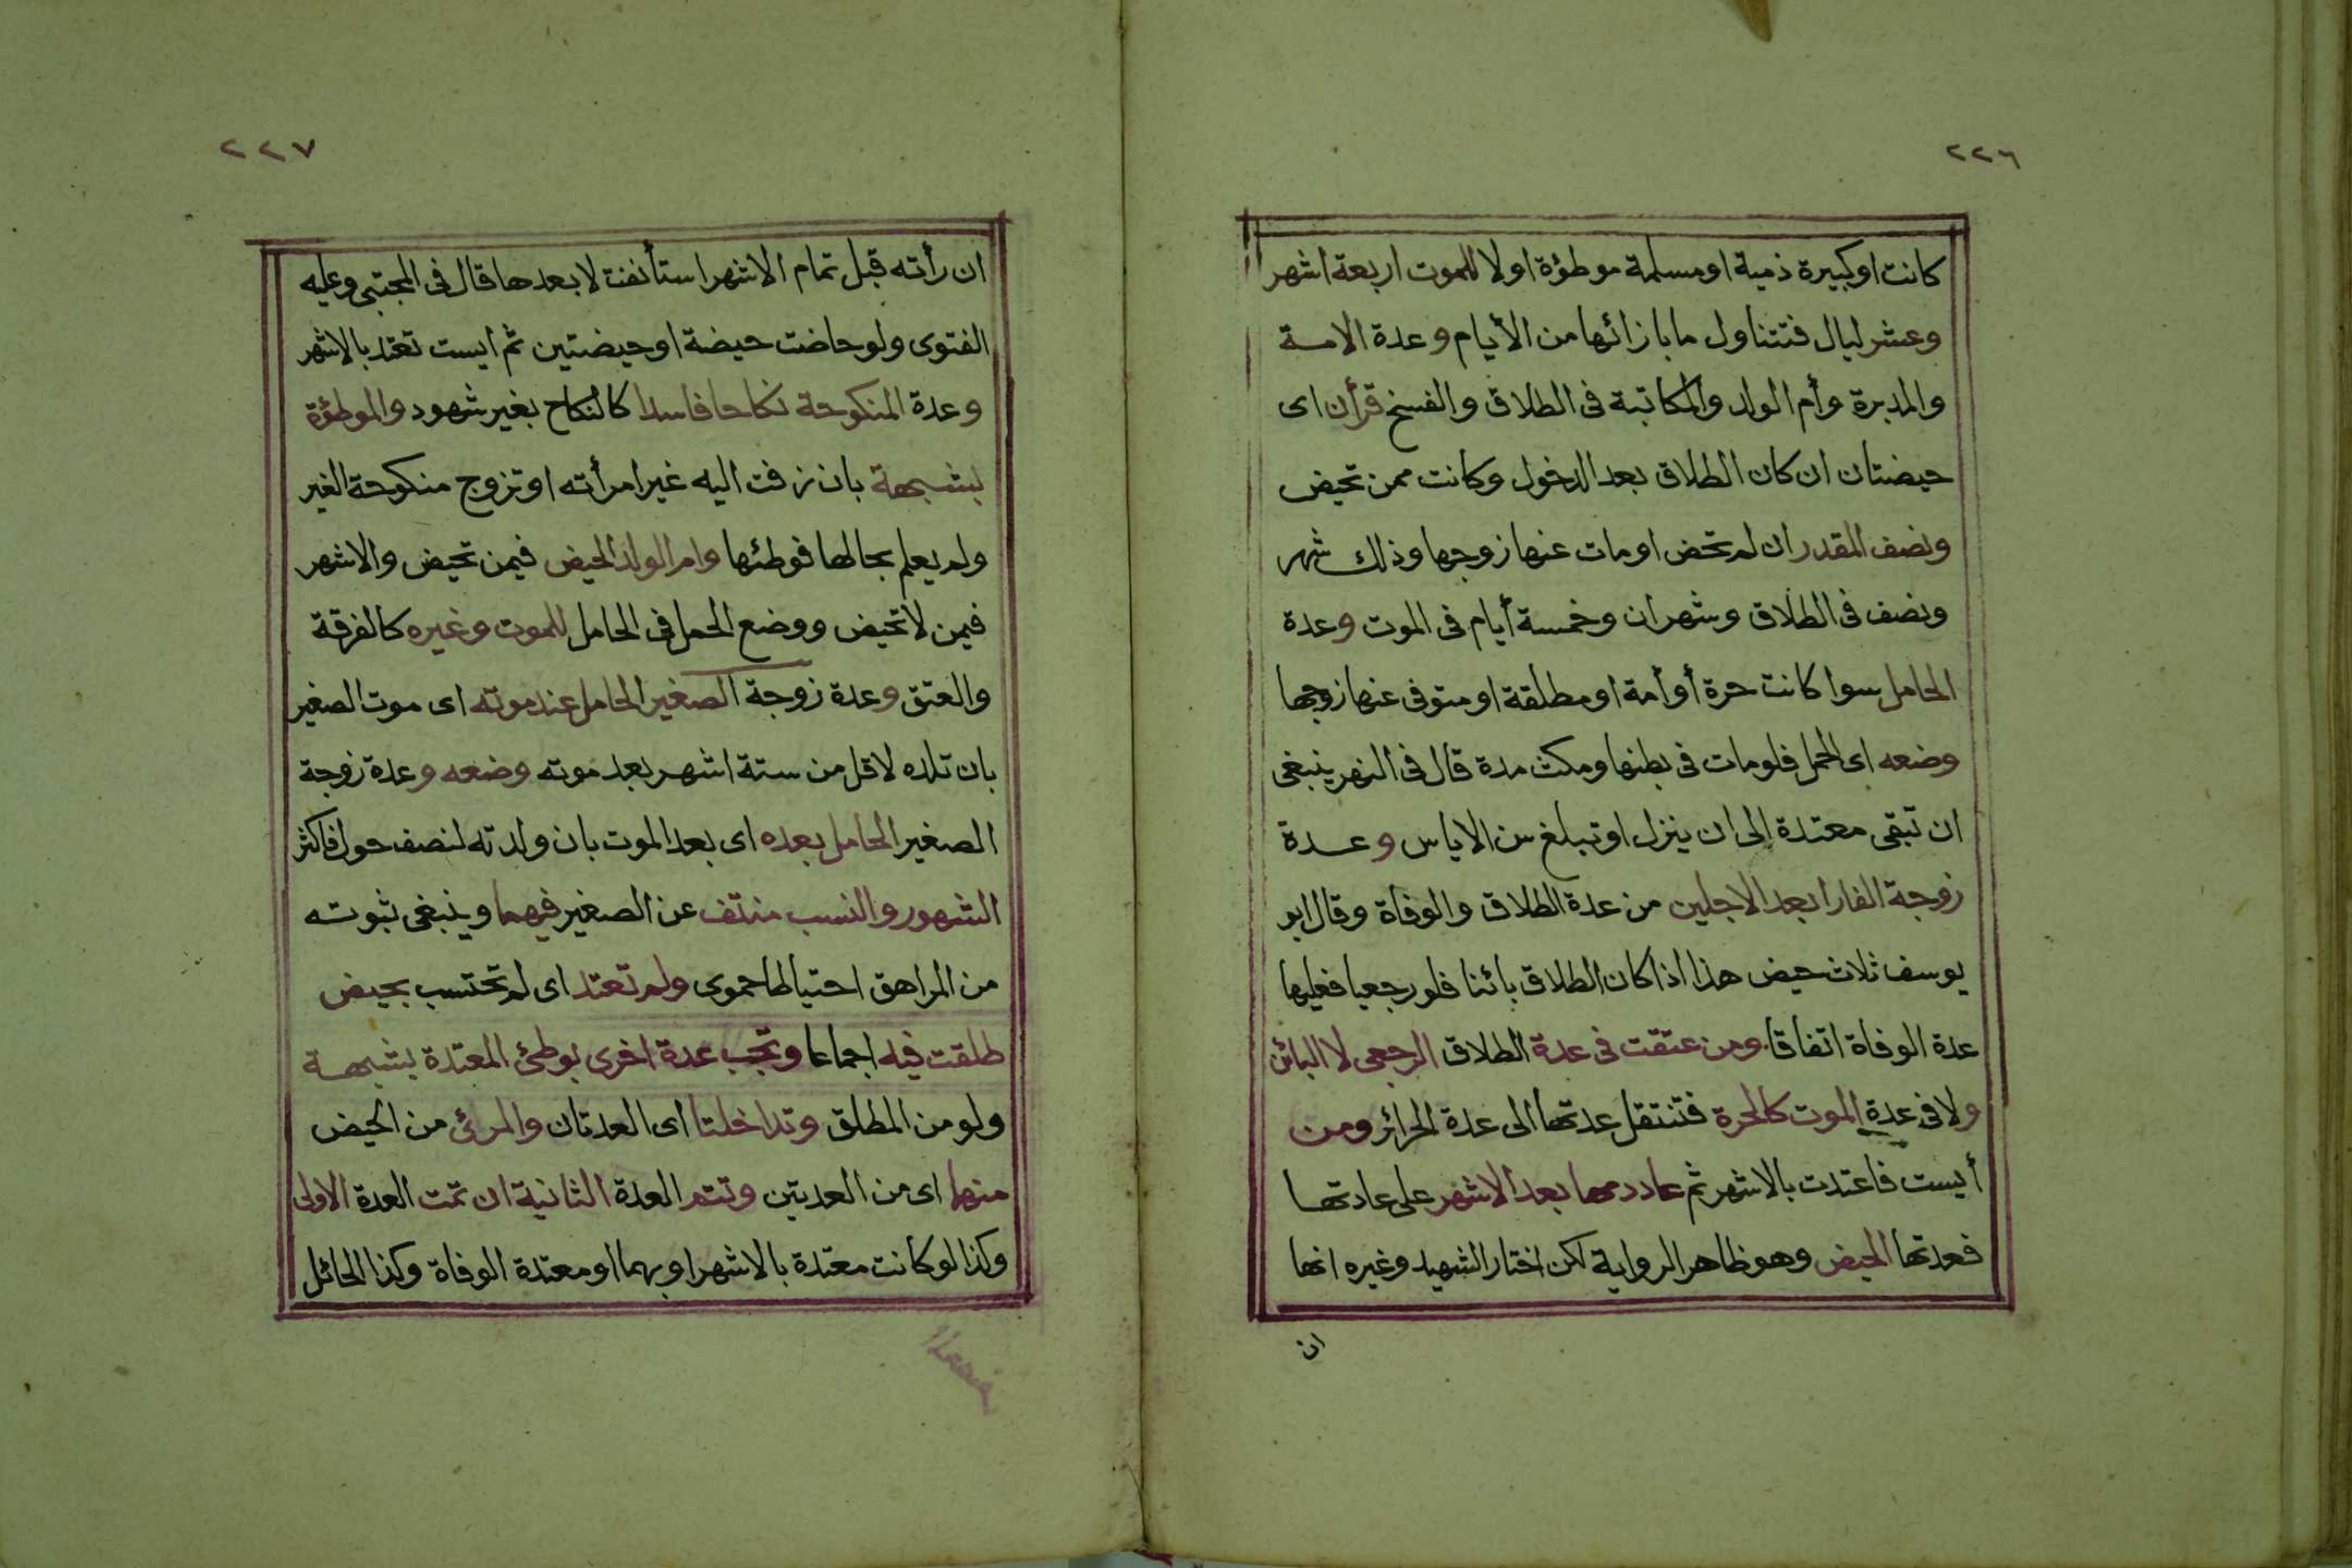 ٢٢٦
كانت او كبيرة ذمية او مسلمة موطؤة او لا للموت اربعة اشهر
وعشر ليال فتتناول ما بازائها من الأيام وعدة الامة
والمدبرة وأم الولد والمكاتبة فى الطلاق والفسخ قرأن اى
حيضتان ان كان الطلاق بعد الدخول وكانت ممن تحيض
ونصف المقدر ان لم تحض او مات عنها زوجها وذلك شهر
ونصف فى الطلاق وشهران وخمسة أيام فى الموت وعدة
الحامل سوا كانت حرة أو أمة او مطلقة او متوفى عنها زوجها
وضعه اى الحمل فلو مات فى بطنها ومكث مدة قال فى النهر ينبغى
ان تبقى معتدة إلى ان ينزل او تبلغ سن الاياس وعدة
زوجة الفار ابعد الاجلين من عدة الطلاق والوفاة وقال ابو
يوسف ثلاث حيض هذا اذا كان الطلاق بائنا فلو رجعيا فعليها
عدة الوفاة اتفاقا ومن عتقت فى عدة الطلاق الرجعى لا البائن
ولا فى عدة الموت كالحرة فتنتقل عدتها الى عدة الحرائر ومن
أيست فاعتدت بالاشهر ثم عاد دمها بعد الاشهر على عادتها
فعدتها الحيض وهو ظاهر الرواية لكن اختار الشهيد وغيره انها
ان
٢٢٧
ان رأته قبل تمام الاشهر استأنفت لا بعدها قال فى المجتبى وعليه
الفتوى ولو حاضت حيضة او حيضتين ثم ايست تعتد بالاشهر
وعدة المنكوحة نكاحا فاسدا كالنكاح بغير شهود والموطؤة
بشبهة بان زفت اليه غير امرأته او تزوج منكوحة الغير
ولم يعلم بحالها فوطئها وام الولد الحيض فيمن تحيض والاشهر
فيمن لا تحيض ووضع الحمل فى الحامل للموت وغيره كالفرقة
والعتق وعدة زوجة الصغير الحامل عند موته اى موت الصغير
بان تلده لاقل من ستة اشهر بعد موته وضعه وعدة زوجة
الصغير الحامل بعده اى بعد الموت بان ولدته لنصف حول فاكثر
الشهور والنسب منتف عن الصغير فيهما وينبغى ثبوته
من المراهق احتياطا حموى ولم تعتد اى لم تحتسب بحيض
طلقت فيه اجماعا وتجب عدة اخرى بوطئ المعتدة بشبهة
ولو من المطلق وتداخلتا اى العدتان والمرئى من الحيض
منهما اى من العدتين وتتم العدة الثانية ان تمت العدة الاولى
وكذا لو كانت معتدة بالاشهر او بهما او معتدة الوفاة وكذا الحائل